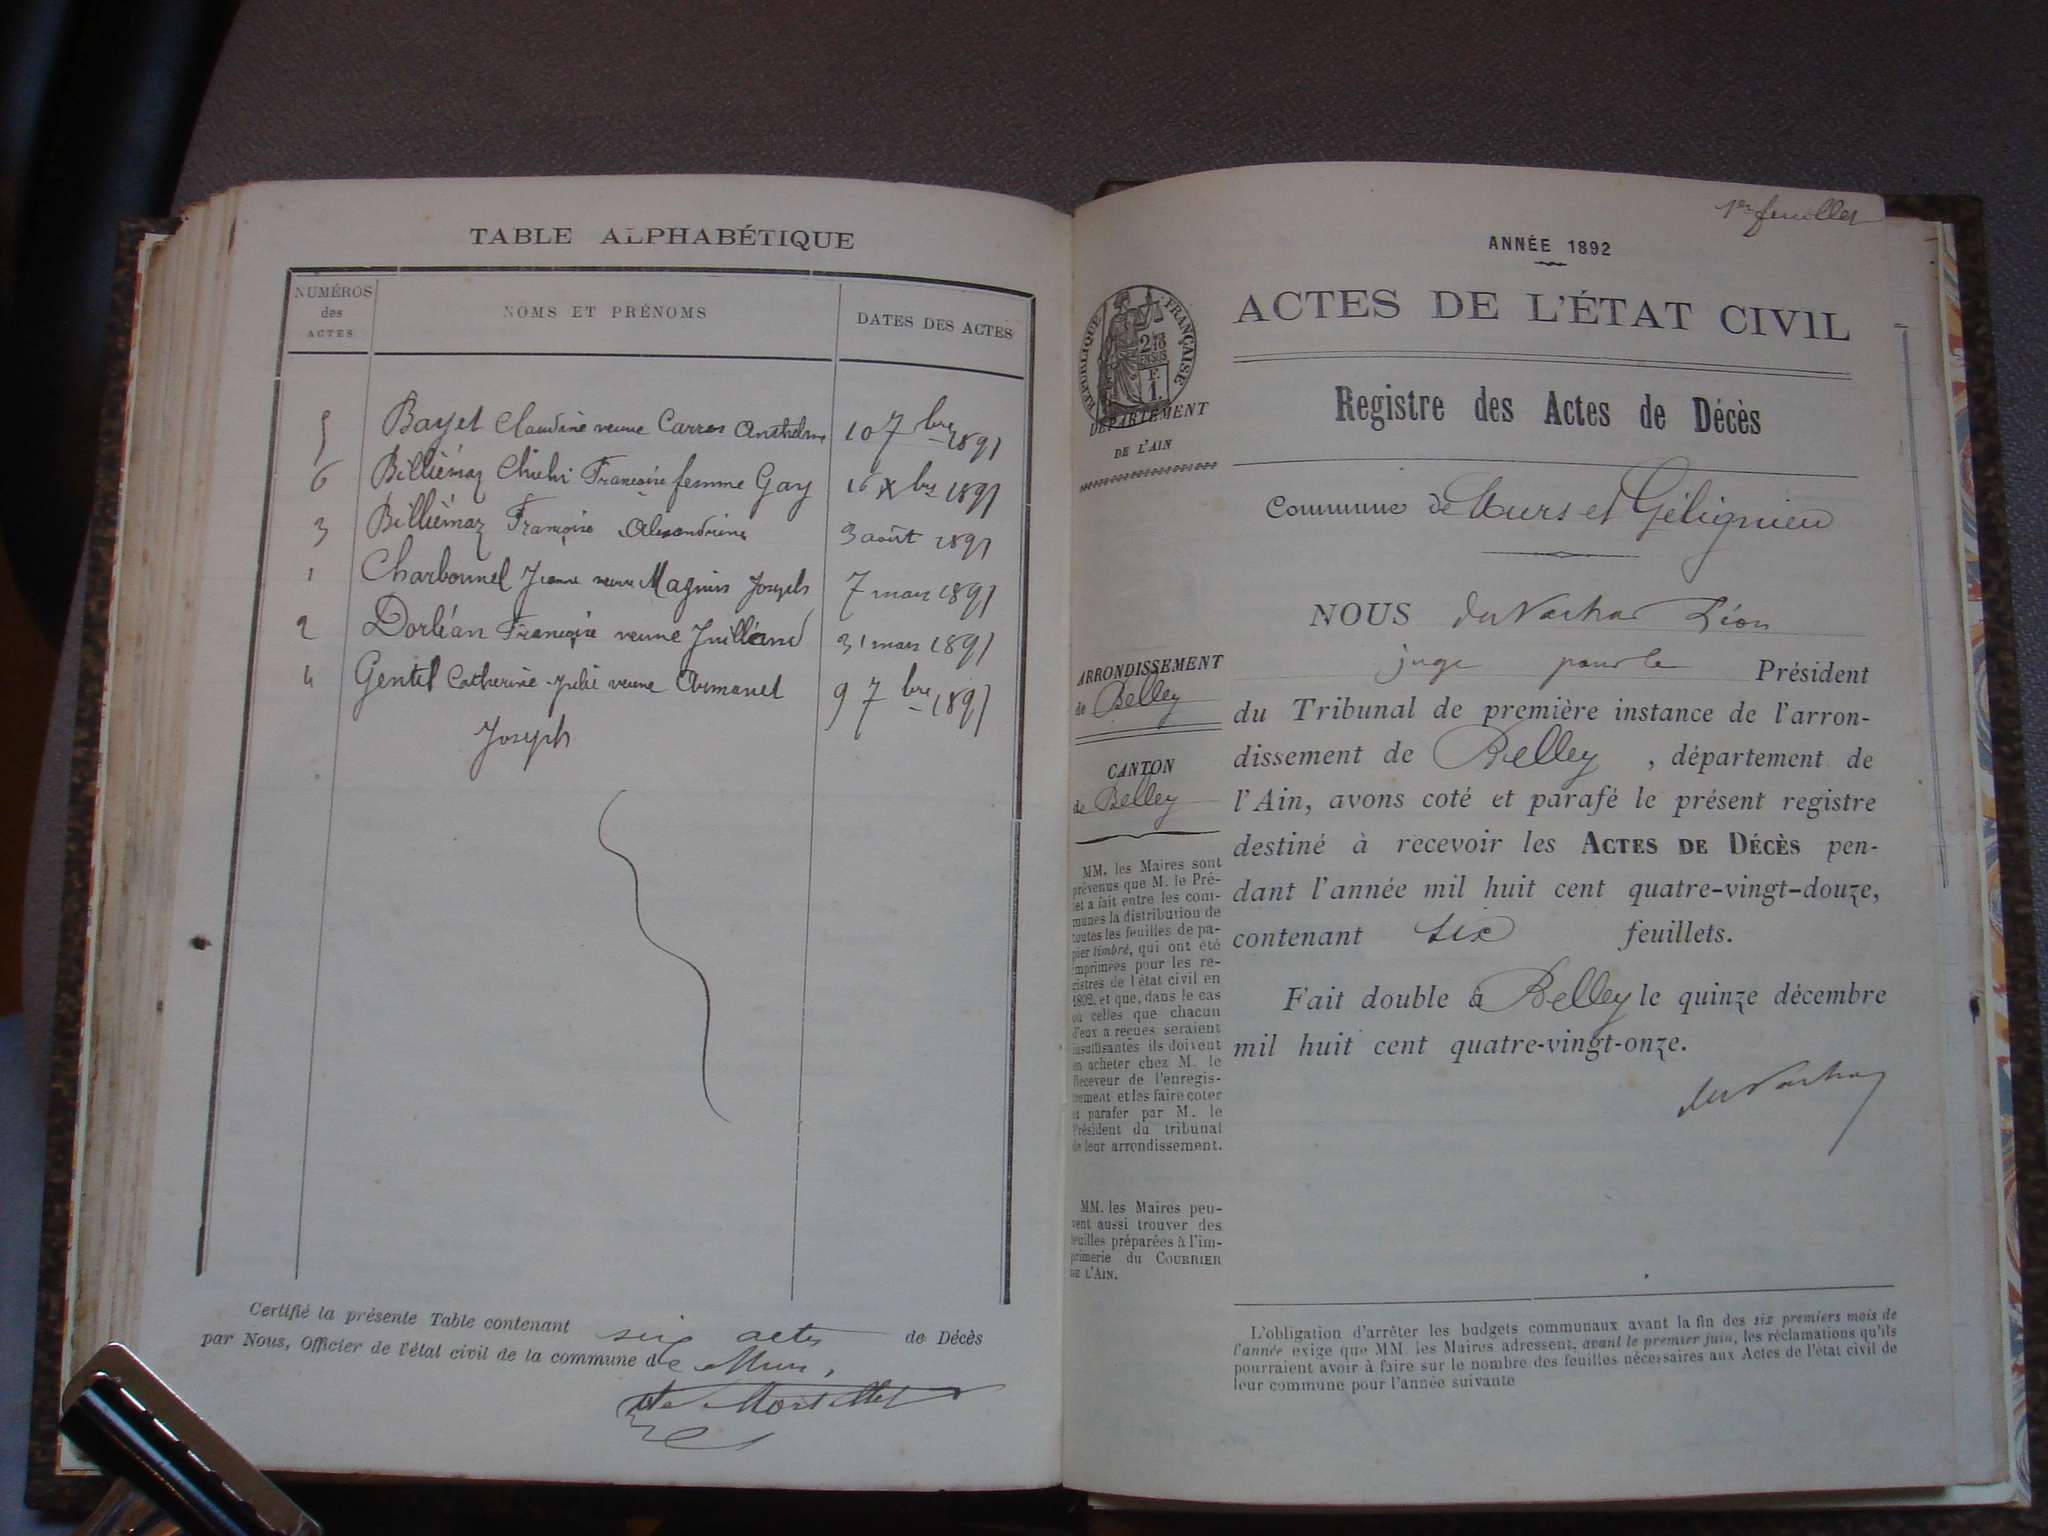 TABLE ALPHABÉTIQUE
NUMÉROS
des
ACTES
NOMS ET PRÉNOMS
DATES DES ACTES
5 Bayet Claudine veuve Carros Anthelme 10 7bre 1891
6 Billiémaz Françoise femme Gay 16 Xbre 1891
3 Billiémaz Françoise Alexandrine 3 août 1891
1 Charbonnel Jeanne veuve Magnin Joseph 7 mars 1891
2 Dorléan Françoise veuve Juilland 31 mars 1891
4 Gentil Catherine Julie veuve Armanet 9 7bre 1891
Joseph
Certifié la présente Table contenant six actes de Décès
par Nous, Officier de l'état civil de la commune de Murs.
1er feuillet
ANNÉE 1892
ACTES DE L'ÉTAT CIVIL
RÉPUBLIQUE FRANÇAISE
2/10 EN SUS
F. 1.
DÉPARTEMENT
DE L'AIN
Registre des Actes de Décès
Commune de Murs et Gélignieu
NOUS Léon
juge pour le Président
du Tribunal de première instance de l'arron-
dissement de Belley, département de
l'Ain, avons coté et parafé le présent registre
destiné à recevoir les ACTES DE DÉCÈS pen-
dant l'année mil huit cent quatre-vingt-douze,
contenant six feuillets.
Fait double à Belley le quinze décembre
mil huit cent quatre-vingt-onze.
ARRONDISSEMENT
de Belley
CANTON
de Belley
MM. les Maires sont
prévenus que M. le Pré-
fet a fait entre les com-
munes la distribution de
toutes les feuilles de pa-
pier timbré, qui ont été
imprimées pour les re-
gistres de l'état civil en
1892, et que, dans le cas
où celles que chacun
d'eux a reçues seraient
insuffisantes ils doivent
en acheter chez M. le
Receveur de l'enregis-
trement et les faire coter
et parafer par M. le
Président du tribunal
de leur arrondissement.
MM. les Maires peu-
vent aussi trouver des
feuilles préparées à l'im-
primerie du COURRIER
DE L'AIN.
L'obligation d'arrêter les budgets communaux avant la fin des six premiers mois de
l'année exige que MM. les Maires adressent, avant le premier juin, les réclamations qu'ils
pourraient avoir à faire sur le nombre des feuilles nécessaires aux Actes de l'état civil de
leur commune pour l'année suivante